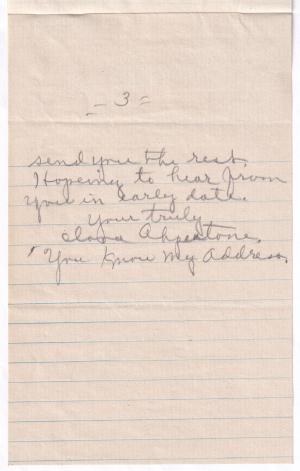 - 3 =
send you the rest.
Hopeing to hear from
you in early date.
Your truly
Clara Ahpeatone.
You know my Address.